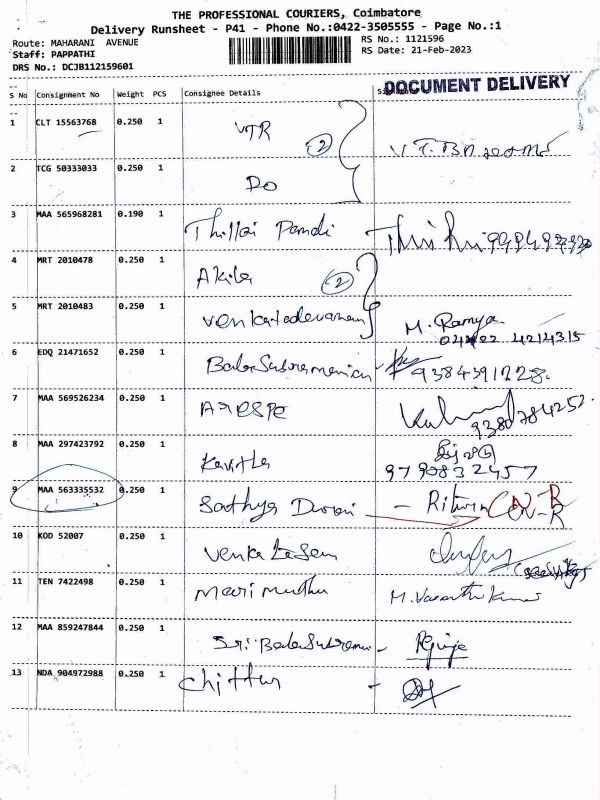 THE PROFESSIONAL COURIERS, Coimbatore
Delivery Runsheet - P41 - Phone No.:0422-3505555 - Page No.:1
Route: MAHARANI AVENUE
RS No.: 1121596
Staff: PAPPATHI
RS Date: 21-Feb-2023
DRS No.: DCJB112159601
DOCUMENT DELIVERY
S No Consignment No Weight PCS Consignee Details
1 CLT 15563768 0.250 1 VTR 2
2 TCG 50333033 0.250 1 DO
3 MAA 565968281 0.190 1 Thillai Pandi
4 MRT 2010478 0.250 1 Akila 2
5 MRT 2010483 0.250 1 M. Ramya
4214315
6 EDQ 21471652 0.250 1 BalaSubramanian - 9384391228
7 MAA 569526234 0.250 1 9380784252
8 MAA 297423792 0.250 1 Kavitha
9790832457
9 MAA 563335532 0.250 1 Sathya Durai - CN-R
CN-R
10 KOD 52007 0.250 1 Venkatesan
11 TEN 7422498 0.250 1 Marimuthu M. Vasanthkumar
12 MAA 859247844 0.250 1 -
13 NDA 904972988 0.250 1 Chittur -